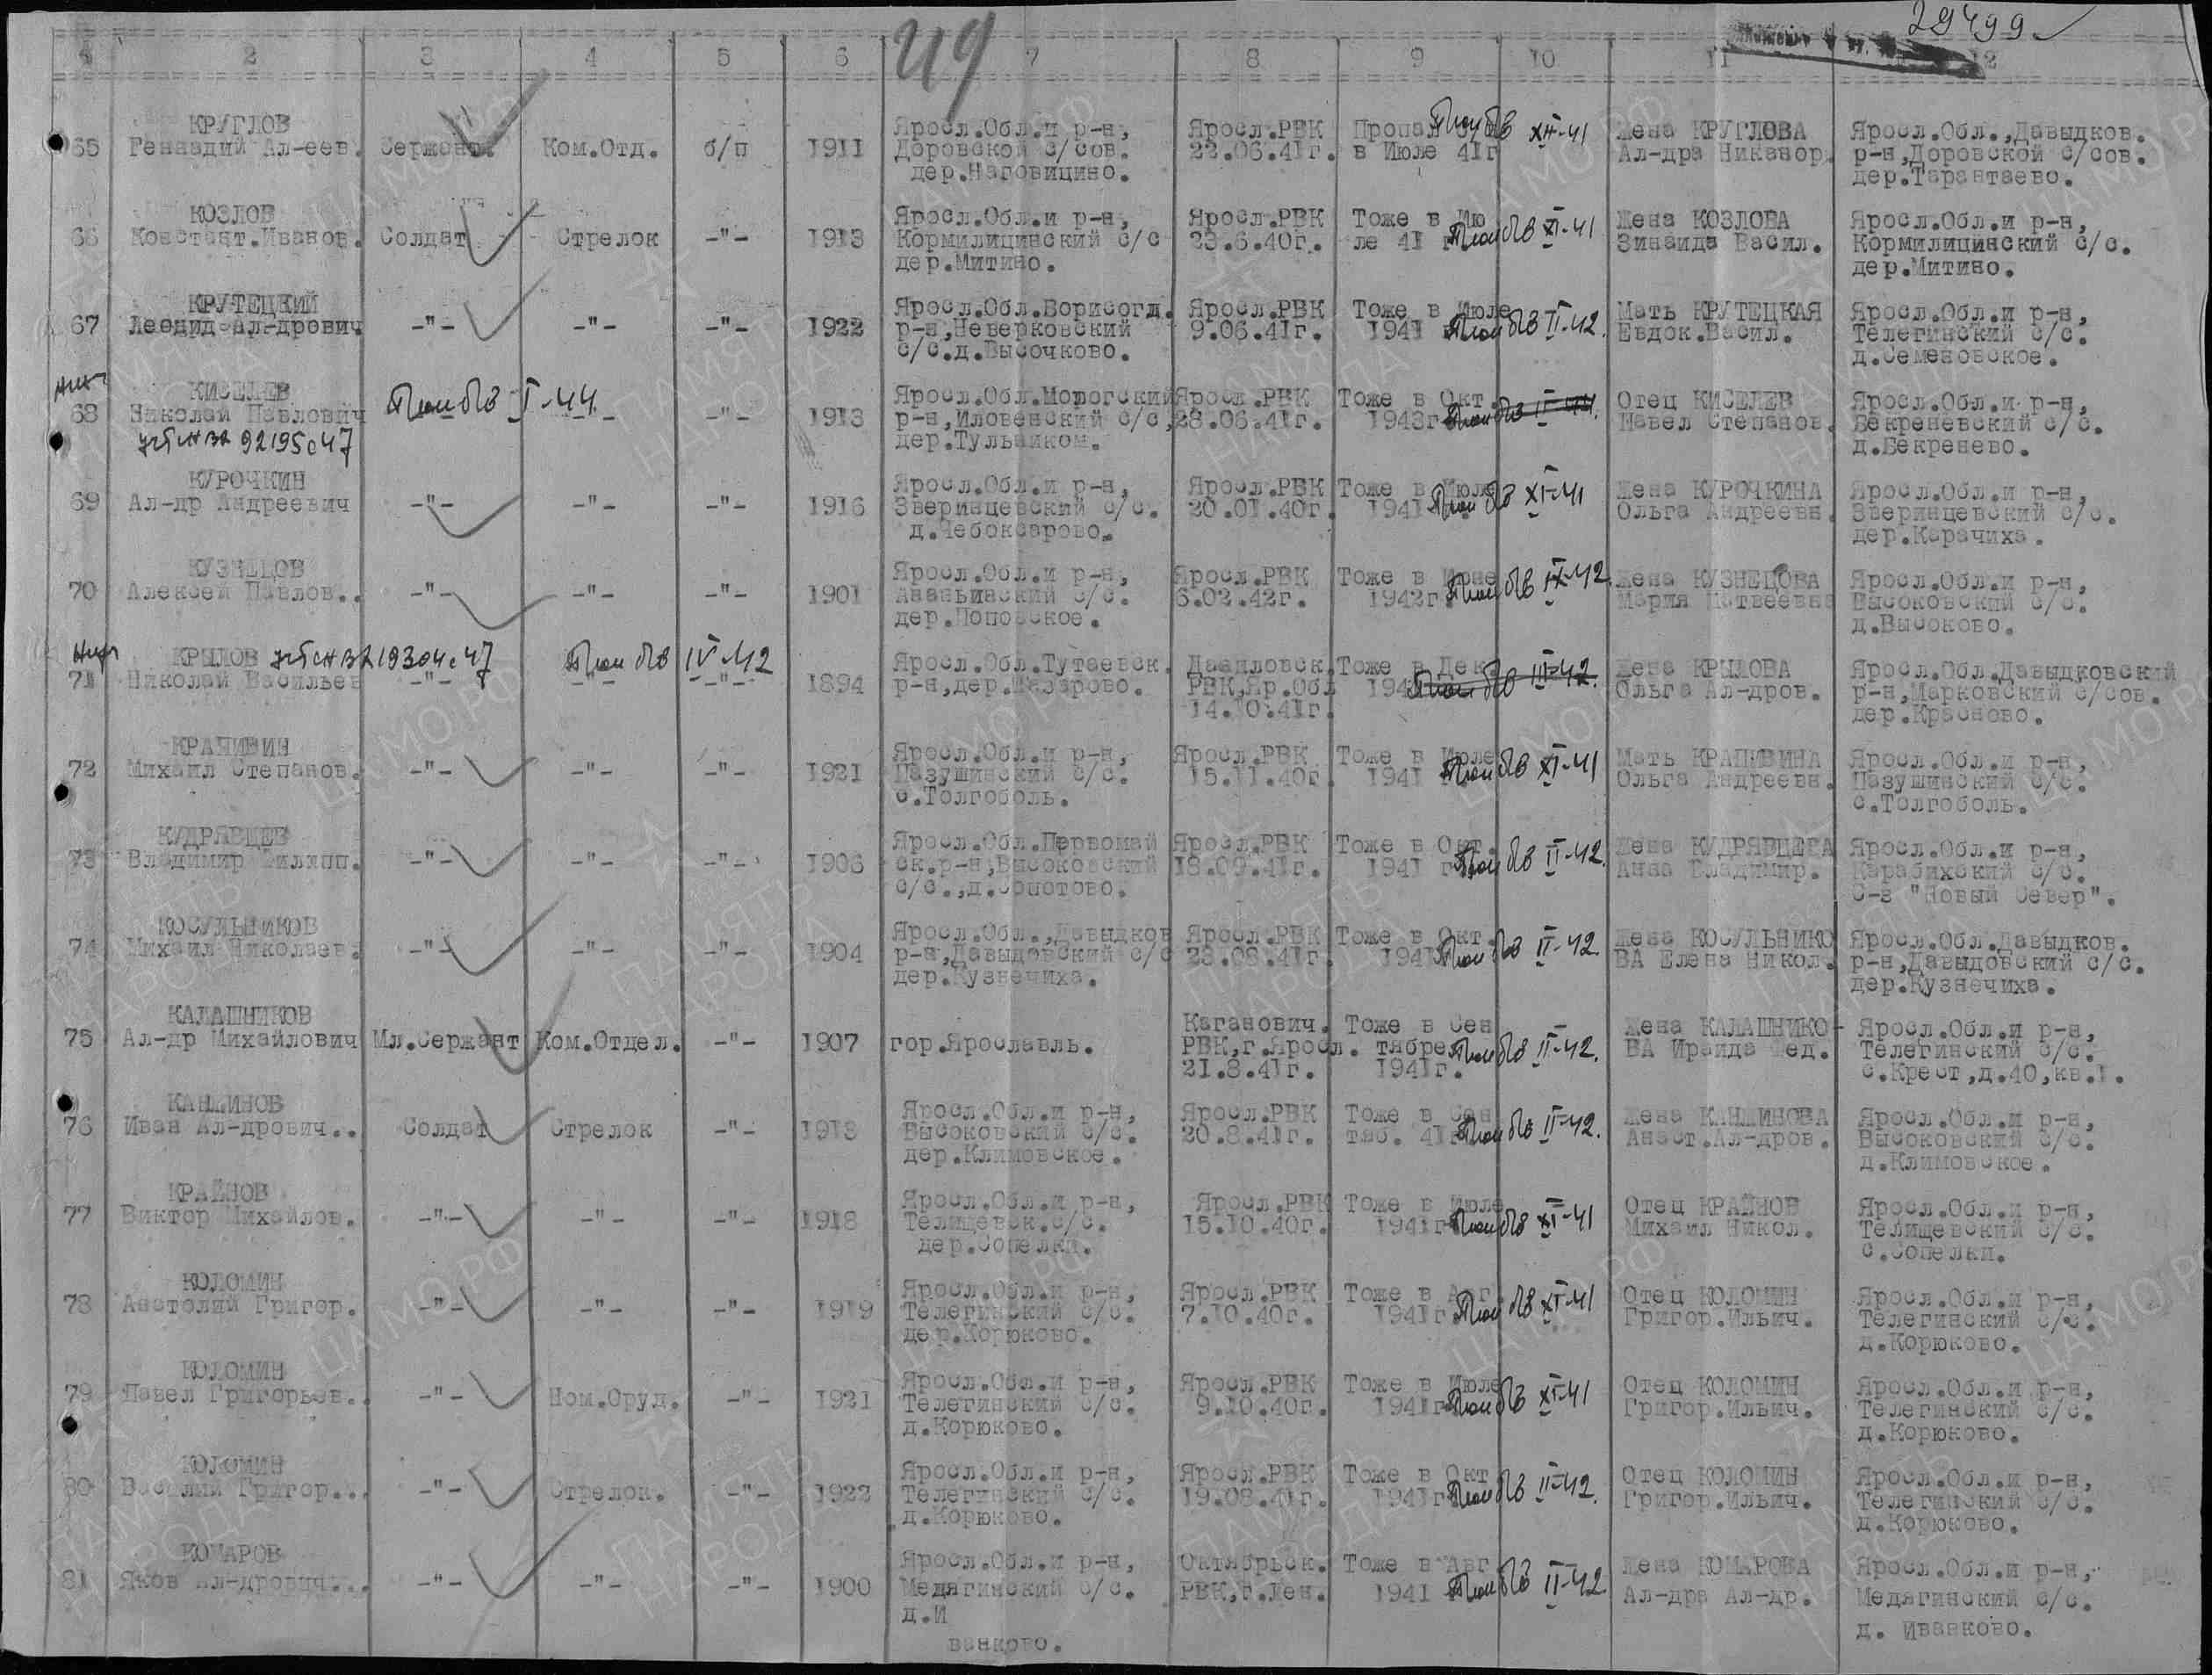 49
29499
1 2 3 4 5 6 7 8 9 10 11 12
65 КРУГЛОВ Геннадий Ал-еев. Сержант. Ком.Отд. б/п 1911
Яросл.Обл.и р-н,
Доровской с/сов.
дер.Наговицино.
Яросл.РВК
22.06.41г.
Пропал
в Июле 41г
XII-41
Жена КРУГЛОВА
Ал-дра Никанор.
Яросл.Обл.,Давыдков.
р-н,Доровской с/сов.
дер.Тарантаево.
66 КОЗЛОВ Констант.Иванов. Солдат Стрелок -"- 1913
Яросл.Обл.и р-н,
Кормилицинский с/с
дер.Митино.
Яросл.РВК
23.6.40г.
Тоже в Ию
ле 41 г
XI-41
Жена КОЗЛОВА
Зинаида Васил.
Яросл.Обл.и р-н,
Кормилицинский с/с.
дер.Митино.
67 КРУТЕЦКИЙ Леонид Ал-дрович -"- -"- -"- 1922
Яросл.Обл.Борисогл.
р-н,Неверковский
с/с.д.Высочково.
Яросл.РВК
9.06.41г.
Тоже в Июле
1941
II-42.
Мать КРУТЕЦКАЯ
Евдок.Васил.
Яросл.Обл.и р-н,
Телегинский с/с.
д.Семеновское.
68 КИСЕЛЕВ Николай Павлович I-44 -"- -"- 1913
92195с47
Яросл.Обл.Мологский
р-н,Иловенский с/с,
Яросл.РВК
28.06.41г.
Тоже в Окт.
1943г
II-44.
Отец КИСЕЛЕВ
Павел Степанов.
Яросл.Обл.и р-н,
Бекреневский с/с.
д.Бекренево.
69 КУРОЧКИН Ал-др Андреевич -"- -"- -"- 1916
Яросл.Обл.и р-н,
Зверинцевский с/с.
д.Чебоксарово.
Яросл.РВК
20.01.40г.
Тоже в Июле
1941
XI-41
Жена КУРОЧКИНА
Ольга Андреевн.
Яросл.Обл.и р-н,
Зверинцевский с/с.
дер.Карачиха.
70 КУЗНЕЦОВ Алексей Павлов.. -"- -"- -"- 1901
Яросл.Обл.и р-н,
Ананьинский с/с.
дер.Поповское.
Яросл.РВК
6.02.42г.
Тоже в Июне
1942г
IX-42
Жена КУЗНЕЦОВА
Мария Матвеевна
Яросл.Обл.и р-н,
Высоковский с/с.
д.Высоково.
71 КРЫЛОВ Николай Васильев -"- -"- -"- 1894
19304с47
IV-42
Яросл.Обл.Тутаевск.
р-н,дер.Назарово.
Даниловск.
РВК,Яр.Обл
14.10.41г.
Тоже в Дек
194
III-42.
Жена КРЫЛОВА
Ольга Ал-дров.
Яросл.Обл.Давыдковский
р-н,Марковский с/сов.
дер.Красново.
72 КРАПИВИН Михаил Степанов. -"- -"- -"- 1921
Яросл.Обл.и р-н,
Пазушинский с/с.
с.Толгоболь.
Яросл.РВК
15.11.40г.
Тоже в Июле
1941
XI-41
Мать КРАПИВИНА
Ольга Андреевн.
Яросл.Обл.и р-н,
Пазушинский с/с.
с.Толгоболь.
73 КУДРЯВЦЕВ Владимир Филипп. -"- -"- -"- 1906
Яросл.Обл.Первомай
ск.р-н,Высоковский
Яросл.РВК
18.09.41г.
Тоже в Окт.
1941 г
II-42.
Жена КУДРЯВЦЕВА
Анна Владимир.
Яросл.Обл.и р-н,
Карабихский с/с.
С-з "Новый Север".
74 КОСУЛЬНИКОВ Михаил Николаев. -"- -"- -"- 1904
Яросл.Обл.,Давыдков
р-н,Давыдовский с/с
дер.Кузнечиха.
Яросл.РВК
23.08.41г.
Тоже в Окт.
1941
II-42.
Жена КОСУЛЬНИКО
ВА Елена Никол.
Яросл.Обл.Давыдков.
р-н,Давыдовский с/с.
дер.Кузнечиха.
75 КАЛАШНИКОВ Ал-др Михайлович Мл.Сержант Ком.Отдел. -"- 1907
гор.Ярославль.
Каганович.
РВК,г.Яросл.
21.8.41г.
Тоже в Сен
тябре
1941г.
II-42.
Жена КАЛАШНИКО-
ВА Ираида Фед.
Яросл.Обл.и р-н,
Телегинский с/с.
с.Крест,д.40,кв.1.
76 КАНШИНОВ Иван Ал-дрович.. Солдат Стрелок -"- 1913
Яросл.Обл.и р-н,
Высоковский с/с.
дер.Климовское.
Яросл.РВК
20.8.41г.
Тоже в Сен
тяб. 41
II-42.
Жена КАНШИНОВА
Анаст.Ал-дров.
Яросл.Обл.и р-н,
Высоковский с/с.
д.Климовское.
77 КРАЙНОВ Виктор Михайлов. -"- -"- -"- 1918
Яросл.Обл.и р-н,
Телищевск.с/с.
дер.Сопелки.
Яросл.РВК
15.10.40г.
Тоже в Июле
1941г
XI-41
Отец КРАЙНОВ
Михаил Никол.
Яросл.Обл.и р-н,
Телищевский с/с.
с.Сопелки.
78 КОЛОМИН Анатолий Григор. -"- -"- -"- 1919
Яросл.Обл.и р-н,
Телегинский с/с.
дер.Корюково.
Яросл.РВК
7.10.40г.
Тоже в Авг
1941г
XI-41
Отец КОЛОМИН
Григор.Ильич.
Яросл.Обл.и р-н,
Телегинский с/с.
д.Корюково.
79 КОЛОМИН Павел Григорьев.. -"- Ком.Оруд. -"- 1921
Яросл.Обл.и р-н,
Телегинский с/с.
д.Корюково.
Яросл.РВК
9.10.40г.
Тоже в Июле
1941г
XI-41
Отец КОЛОМИН
Григор.Ильич.
Яросл.Обл.и р-н,
Телегинский с/с.
д.Корюково.
80 КОЛОМИН Василий Григор... -"- Стрелок. -"- 1922
Яросл.Обл.и р-н,
Телегинский с/с.
д.Корюково.
Яросл.РВК
19.08.41г.
Тоже в Окт
1941г
II-42.
Отец КОЛОМИН
Григор.Ильич.
Яросл.Обл.и р-н,
Телегинский с/с.
д.Корюково.
81 КОМАРОВ Яков Ал-дрович... -"- -"- -"- 1900
Яросл.Обл.и р-н,
Медягинский с/с.
д.И
ванково.
Октябрьск.
РВК,г.Лен.
Тоже в Авг
1941
II-42
Жена КОМАРОВА
Ал-дра Ал-др.
Яросл.Обл.и р-н,
Медягинский с/с.
д. Иванково.